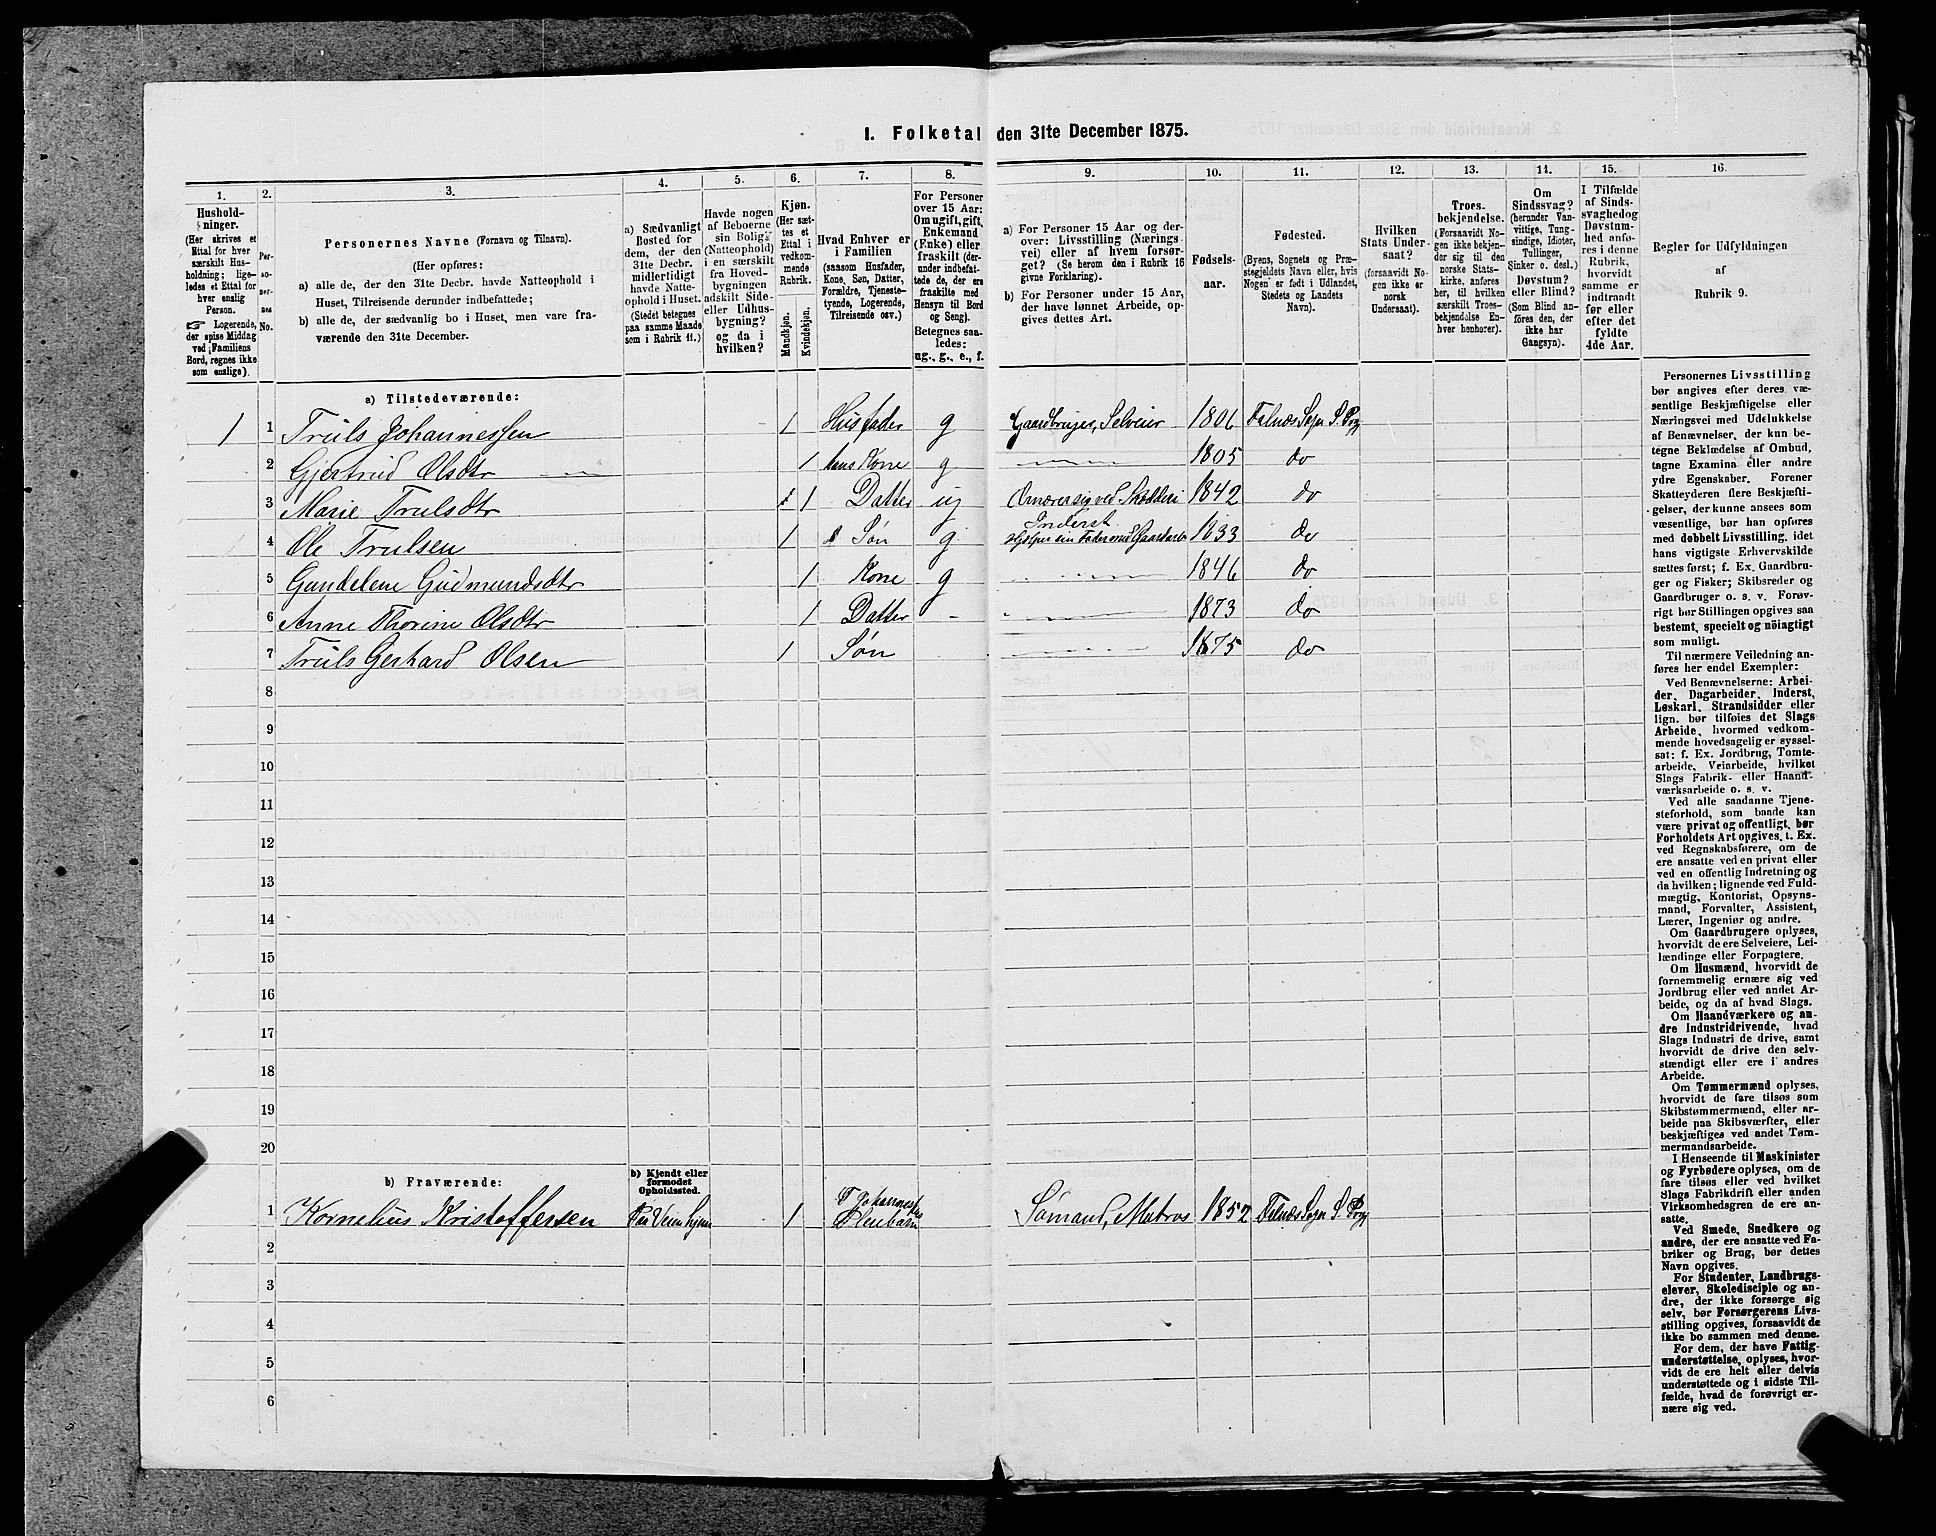 1. Folketal den 31te December 1875.
1.
Hushold-
ninger.
(Her skrives et
Ettal for hver
særskilt Hus-
holdning; lige-
ledes et Ettal for
hver enslig
Person.
☞ Logerende,
der spise Middag
ved Familiens
Bord, regnes ikke
som enslige).
2.
Per-
so-
ner-
nes
No.
3.
Personernes Navne (Fornavn og Tilnavn).
(Her opføres:
a) alle de, der den 31te Decbr. havde Natteophold i
Huset, Tilreisende derunder indbefattede;
b) alle de, der sædvanlig bo i Huset, men vare fra-
værende den 31te December.
4.
a) Sædvanligt
Bosted for
dem, der den
31te Decbr.
midlertidigt
havde Natte-
ophold i Huset.
(Stedet betegnes
paa samme Maade
som i Rubrik 11.)
5.
Havde nogen
af Beboerne
sin Bolig
(Natteophold)
i en særskilt
fra Hoved-
bygningen
adskilt Side-
eller Udhus-
bygning?
og da i
hvilken?
6.
Kjøn.
(Her sæt-
tes et
Ettal i
vedkom-
mende
Rubrik.
Mandkjøn.
Kvindekjøn.
7.
Hvad Enhver er
i Familien
(saasom Husfader,
Kone, Søn, Datter,
Forældre, Tjeneste-
tyende, Logerende,
Tilreisende osv.)
8.
For Personer
over 15 Aar:
Om ugift, gift,
Enkemand
(Enke) eller
fraskilt (der-
under indbefat-
tede de, der ere
fraskilte med
Hensyn til Bord
og Seng).
Betegnes saa-
ledes:
ug., g., e., f.
9.
a) For Personer 15 Aar og der-
over: Livsstilling (Nærings-
vei) eller af hvem forsør-
get? (Se herom den i Rubrik 16
givne Forklaring).
b) For Personer under 15 Aar,
der have lønnet Arbeide, op-
gives dettes Art.
10.
Fødsels-
aar.
11.
Fødested.
(Byens, Sognets og Præ-
stegjeldets Navn eller, hvis
Nogen er født i Udlandet,
Stedets og Landets
Navn).
12.
Hvilken
Stats Under-
saat?
(forsaavidt No-
gen ikke er
norsk
Undersaat).
13.
Troes-
bekjendelse.
(Forsaavidt No-
gen ikke bekjen-
der sig til den
norske Stats-
kirke, anføres
her, til hvilken
særskilt Troes-
bekjendelse En-
hver henhører).
14.
Om
Sindssvag?
(herunder Van-
vittige, Tung-
sindige, Idioter,
Tullinger,
Sinker o. desl.)
Døvstum?
eller Blind?
(Som Blind an-
føres den, der
ikke har
Gangsyn).
15.
I Tilfælde
af Sinds-
svaghed og
Døvstum-
hed anfø-
res i denne
Rubrik,
hvorvidt
samme er
indtraadt
før eller
efter det
fyldte
4de Aar.
16.
Regler for Udfyldningen
af
Rubrik 9.
a) Tilstedeværende:
1 1 Truls Johannessen 1 Husfader g Gaardbruger, Selveier 1806 Falnæs Sogn S. Prgj
2 Gjertrud Olsdtr 1 hans Kone g 1805 do
3 Marie Trulsdtr 1 Datter ug Ernærer sig ved Skrædderi 1842 do
Inderst
4 Ole Trulsen 1 Søn g Hjelper sin Fader med Gaardarb 1833 do
5 Gundelene Gudmundsdtr 1 Kone g 1846 do
6 Anne Thorine Olsdtr 1 Datter - 1873 do
7 Truls Gerhard Olsen 1 Søn 1875 do
8
9
10
11
12
13
14
15
16
17
18
19
20
b) Fraværende:
b) Kjendt eller
formodet
Opholdssted.
T Johannesses
1 Kornelius Kristoffersen 1 Pleiebarn Sømand, Matros 1852 Falnæs Sogn S. Prgj
2
3
4
5
6
Personernes Livsstilling
bør angives efter deres væ-
sentlige Beskjæftigelse eller
Næringsvei med Udelukkelse
af Benævnelser, der kun be-
tegne Beklædelse af Ombud,
tagne Examina eller andre
ydre Egenskaber. Forener
Skatteyderen flere Beskjæfti-
gelser, der kunne ansees som
væsentlige, bør han opføres
med dobbelt Livsstilling, idet
hans vigtigste Erhvervskilde
sættes først; f. Ex. Gaardbru-
ger og Fisker; Skibsreder og
Gaardbruger o. s. v. Forøv-
rigt bør Stillingen opgives saa
bestemt, specielt og nöiagtigt
som muligt.
Til nærmere Veiledning an-
føres her endel Exempler:
Ved Benævnelserne: Arbei-
der, Dagarbeider, Inderst,
Løskarl, Strandsidder eller
lign. bør tilføies det Slags
Arbeide, hvormed vedkom-
mende hovedsagelig er syssel-
sat; f. Ex. Jordbrug, Tomte-
arbeide, Veiarbeide, hvilket
Slags Fabrik- eller Haand-
værksarbeide o. s. v.
Ved alle saadanne Tjene-
steforhold, som baade kan
være privat og offentligt, bør
Forholdets Art opgives, t. Ex.
ved Regnskabsførere, om de
ere ansatte ved en privat eller
ved en offentlig Indretning og
da hvilken; lignende ved Fuld-
mægtig, Kontorist, Opsyns-
mand, Forvalter, Assistent,
Lærer, Ingeniør og andre.
Om Gaardbrugere oplyses,
hvorvidt de ere Selveiere, Lei-
lændinge eller Forpagtere.
Om Husmænd, hvorvidt de
fornemmelig ernære sig ved
Jordbrug eller ved andet Ar-
beide, og da af hvad Slags.
Om Haandværkere og an-
dre Industridrivende, hvad
Slags Industri de drive, samt
hvorvidt de drive den selv-
stændigt eller ere i andres
Arbeide.
Om Tømmermænd oplyses,
hvorvidt de fare tilsøs som
Skibstømmermænd, eller ar-
beide paa Skibsværfter, eller
beskjæftiges ved andet Tøm-
mermandsarbeide.
I Henseende til Maskinister
og Fyrbødere oplyses, om de
fare tilsøs eller ved hvilket
Slags Fabrikdrift eller anden
Virksomhedsgren de ere an-
satte.
Ved Smede, Snedkere og
andre, der ere ansatte ved Fa-
briker og Brug, bør dettes
Navn opgives.
For Studenter, Landbrugs-
elever, Skoledisciple og an-
dre, der ikke forsørge sig
selv, bør Forsørgerens Livs-
stilling opgives, forsaavidt de
ikke bo sammen med denne.
For dem, der have Fattig-
understøttelse, oplyses, hvor-
vidt de ere helt eller delvis
understøttede og i sidste Til-
fælde, hvad de forøvrigt er-
nære sig ved.